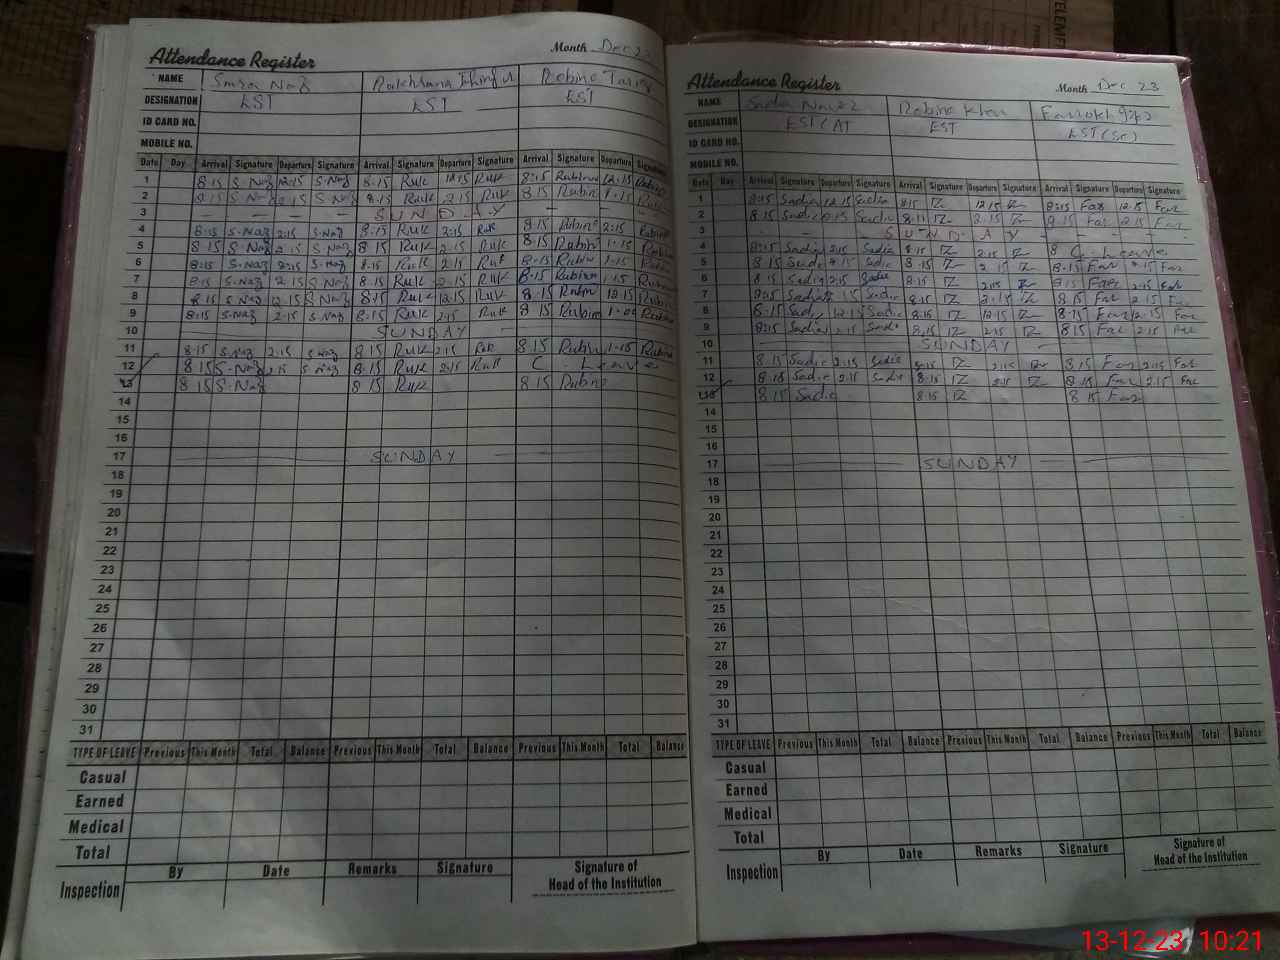 Attendance Register Month Dec 23
NAME Smra Naz Rukhsana Robina Tariq
DESIGNATION EST EST EST
ID CARD NO.
MOBILE NO.
Date Day Arrival Signature Departure Signature Arrival Signature Departure Signature Arrival Signature Departure Signature
1 8:15 S.Naz 12:15 S.Naz 8:15 Ruk 12:15 Ruk 8:15 Rubina 12:15 Rubina
2 8:15 S.Naz 2:15 S.Naz 8:15 Ruk 2:15 Ruk 8:15 Rubin 1:15 Rubin
3 — — — — SUNDAY
4 8:15 S.Naz 2:15 S.Naz 8:15 Ruk 2:15 Ruk 8:15 Rubin 2:15 Rubin
5 8:15 S.Naz 2:15 S.Naz 8:15 Ruk 2:15 Ruk 8:15 Rubin 1:15 Rubin
6 8:15 S.Naz 2:15 S.Naz 8:15 Ruk 2:15 Ruk 8:15 Rubin 1:15 Rubin
7 8:15 S.Naz 2:15 S.Naz 8:15 Ruk 2:15 Ruk 8:15 Rubin 1:15 Rubin
8 8:15 S.Naz 12:15 S.Naz 8:15 Ruk 12:15 Ruk 8:15 Rubin 12:15 Rubin
9 8:15 S.Naz 2:15 S.Naz 8:15 Ruk 2:15 Ruk 8:15 Rubin 1:00 Rubin
10 SUNDAY
11 8:15 S.Naz 2:15 S.Naz 8:15 Ruk 2:15 Ruk 8:15 Rubin 1:15 Rubin
12 8:15 S.Naz 2:15 S.Naz 8:15 Ruk 2:15 Ruk C. Leave
13 8:15 S.Naz 8:15 Ruk 8:15 Rubin
14
15
16
17 SUNDAY
18
19
20
21
22
23
24
25
26
27
28
29
30
31
TYPE OF LEAVE Previous This Month Total Balance Previous This Month Total Balance Previous This Month Total Balance
Casual
Earned
Medical
Total
Inspection By Date Remarks Signature Signature of
Head of the Institution
Attendance Register Month Dec 23
NAME Sadia Nawaz Robina Khan Farrukh
DESIGNATION EST(AT EST EST(Sc)
ID CARD NO.
MOBILE NO.
Date Day Arrival Signature Departure Signature Arrival Signature Departure Signature Arrival Signature Departure Signature
1 8:15 Sadia 12:15 Sadia 8:15 RZ 12:15 RZ 8:15 Far 12:15 Far
2 8:15 Sadia 2:15 Sadia 8:15 RZ 2:15 RZ 8:15 Far 2:15 Far
3 SUNDAY
4 8:15 Sadia 2:15 Sadia 8:15 RZ 2:15 RZ 8 C. Leave
5 8:15 Sadia 2:15 Sadia 8:15 RZ 2:15 RZ 8:15 Far 2:15 Far
6 8:15 Sadia 2:15 Sadia 8:15 RZ 2:15 RZ 8:15 Far 2:15 Far
7 8:15 Sadia 2:15 Sadia 8:15 RZ 2:15 RZ 8:15 Far 2:15 Far
8 8:15 Sadia 12:15 Sadia 8:15 RZ 12:15 RZ 8:15 Far 12:15 Far
9 8:15 Sadia 2:15 Sadia 8:15 RZ 2:15 RZ 8:15 Far 2:15 Far
10 SUNDAY
11 8:15 Sadia 2:15 Sadia 8:15 RZ 2:15 RZ 8:15 Far 2:15 Far
12 8:15 Sadia 2:15 Sadia 8:15 RZ 2:15 RZ 8:15 Far 2:15 Far
13 8:15 Sadia 8:15 RZ 8:15 Far
14
15
16
17 SUNDAY
18
19
20
21
22
23
24
25
26
27
28
29
30
31
TYPE OF LEAVE Previous This Month Total Balance Previous This Month Total Balance Previous This Month Total Balance
Casual
Earned
Medical
Total
Inspection By Date Remarks Signature Signature of
Head of the Institution
13-12-23 10:21